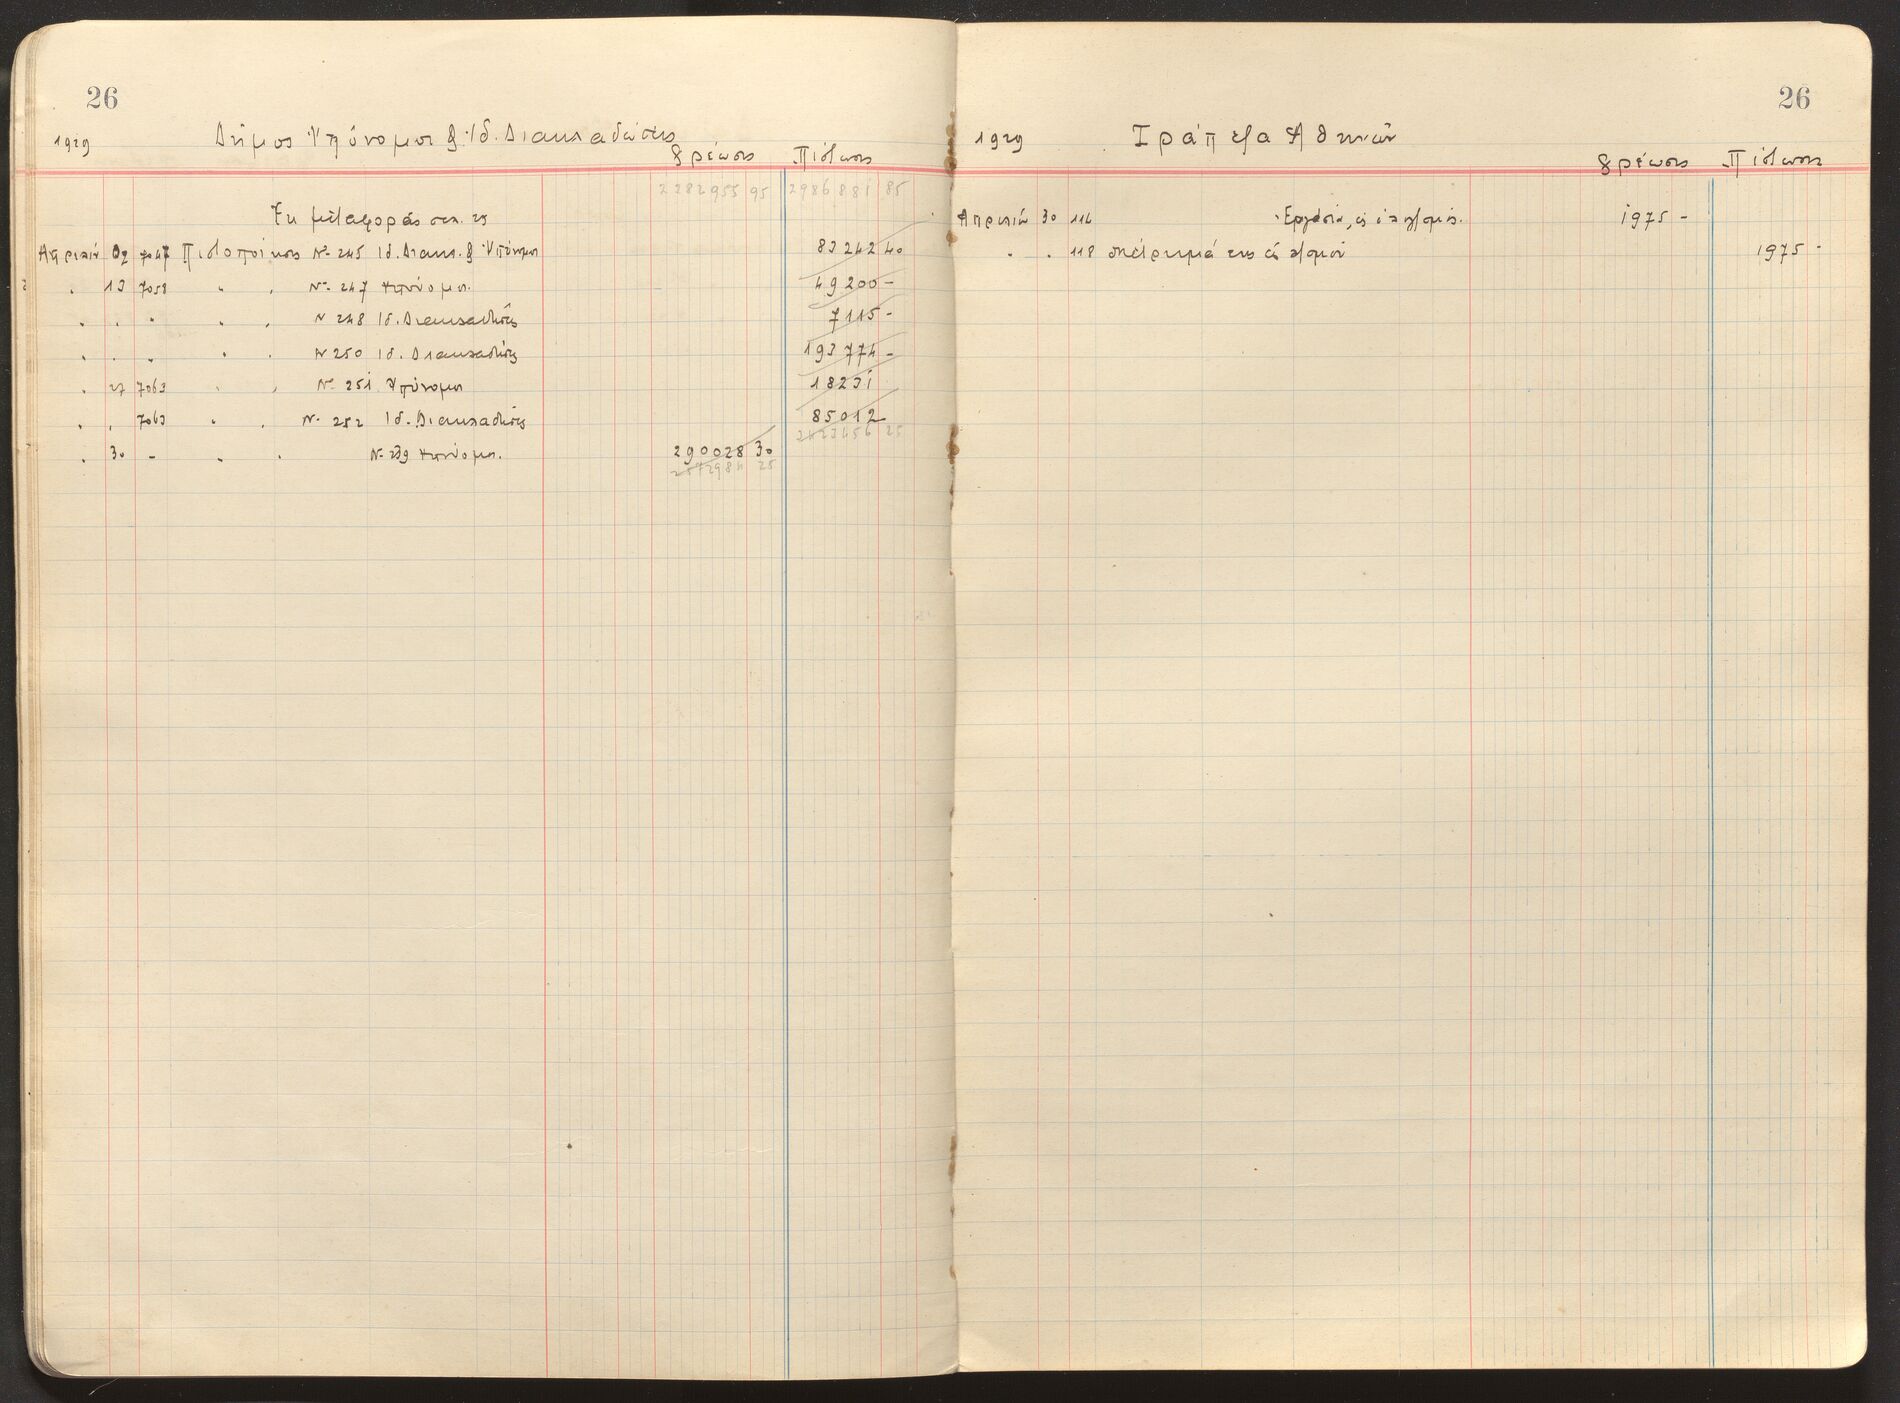 26
1929 Δήμος Υπόνομοι & Ιδ. Διακλαδώσεις
χρέωσις πίστωσις
2282955 95 2986881 85
Εκ μεταφοράς σελ.
Απριλίου 02 7047 Πιστοποίησις Νο 245 Ιδ. Διακλ. & Υπόνομοι 83242 40
" 13 7058 " " Νο 247 Υπόνομοι. 49200 -
" " " " " Ν 248 Ιδ. Διακλαδώσεις 7115 -
" " " " " Ν 250 Ιδ. Διακλαδώσεις 193774 -
" 27 7063 " " Νο 251 Υπόνομοι 18231
" " 7063 " " Νο 252 Ιδ. Διακλαδώσεις 85012
2423456 25
" 30 - " " Νο 239 Υπόνομοι. 290028 30
2572984 25
26
1929 Τράπεζα Αθηνών
χρέωσις πίστωσις
Απριλίου 30 116 Εργασία, 1975 -
" " 118 1975 -